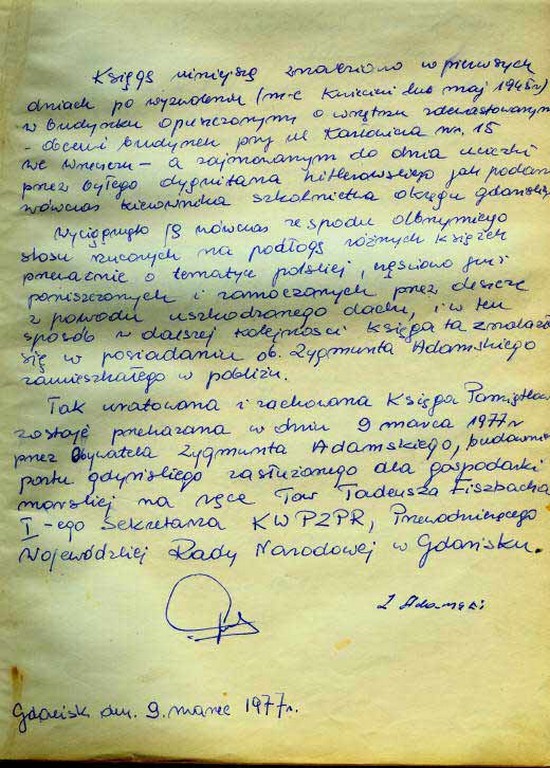 Księgę niniejszą znaleziono w pierwszych
dniach po wyzwoleniu (m-c Kwiecień lub maj 1945r)
w budynku opuszczonym o wnętrzu zdewastowanym
- obecnie budynek przy ul Karłowicza nr. 15
we Wrzeszczu - a zajmowanym do dnia ucieczki
przez byłego dygnitarza hitlerowskiego jak podano
wówczas kierownika szkolnictwa okręgu gdańskiego
Wyciągnięto ją wówczas ze spodu olbrzymiego
stosu rzuconych na podłogę różnych książek
przeważnie o tematyce polskiej, częściowo już
poniszczonych i zamoczonych przez deszcze
z powodu uszkodzonego dachu, i w ten
sposób w dalszej kolejności Księga ta znalazła
się w posiadaniu ob. Zygmunta Adamskiego
zamieszkałego w pobliżu.
Tak uratowana i zachowana Księga Pamiątkowa
zostaje przekazana w dniu 9 marca 1977r
przez Obywatela Zygmunta Adamskiego, budowniczego
portu gdyńskiego zasłużonego dla gospodarki
morskiej na ręce Tow Tadeusza Fiszbacha
I-ego Sekretarza KW PZPR, Przewodniczącego
Wojewódzkiej Rady Narodowej w Gdańsku.
Z Adamski
Gdańsk dn. 9. marzec 1977r.